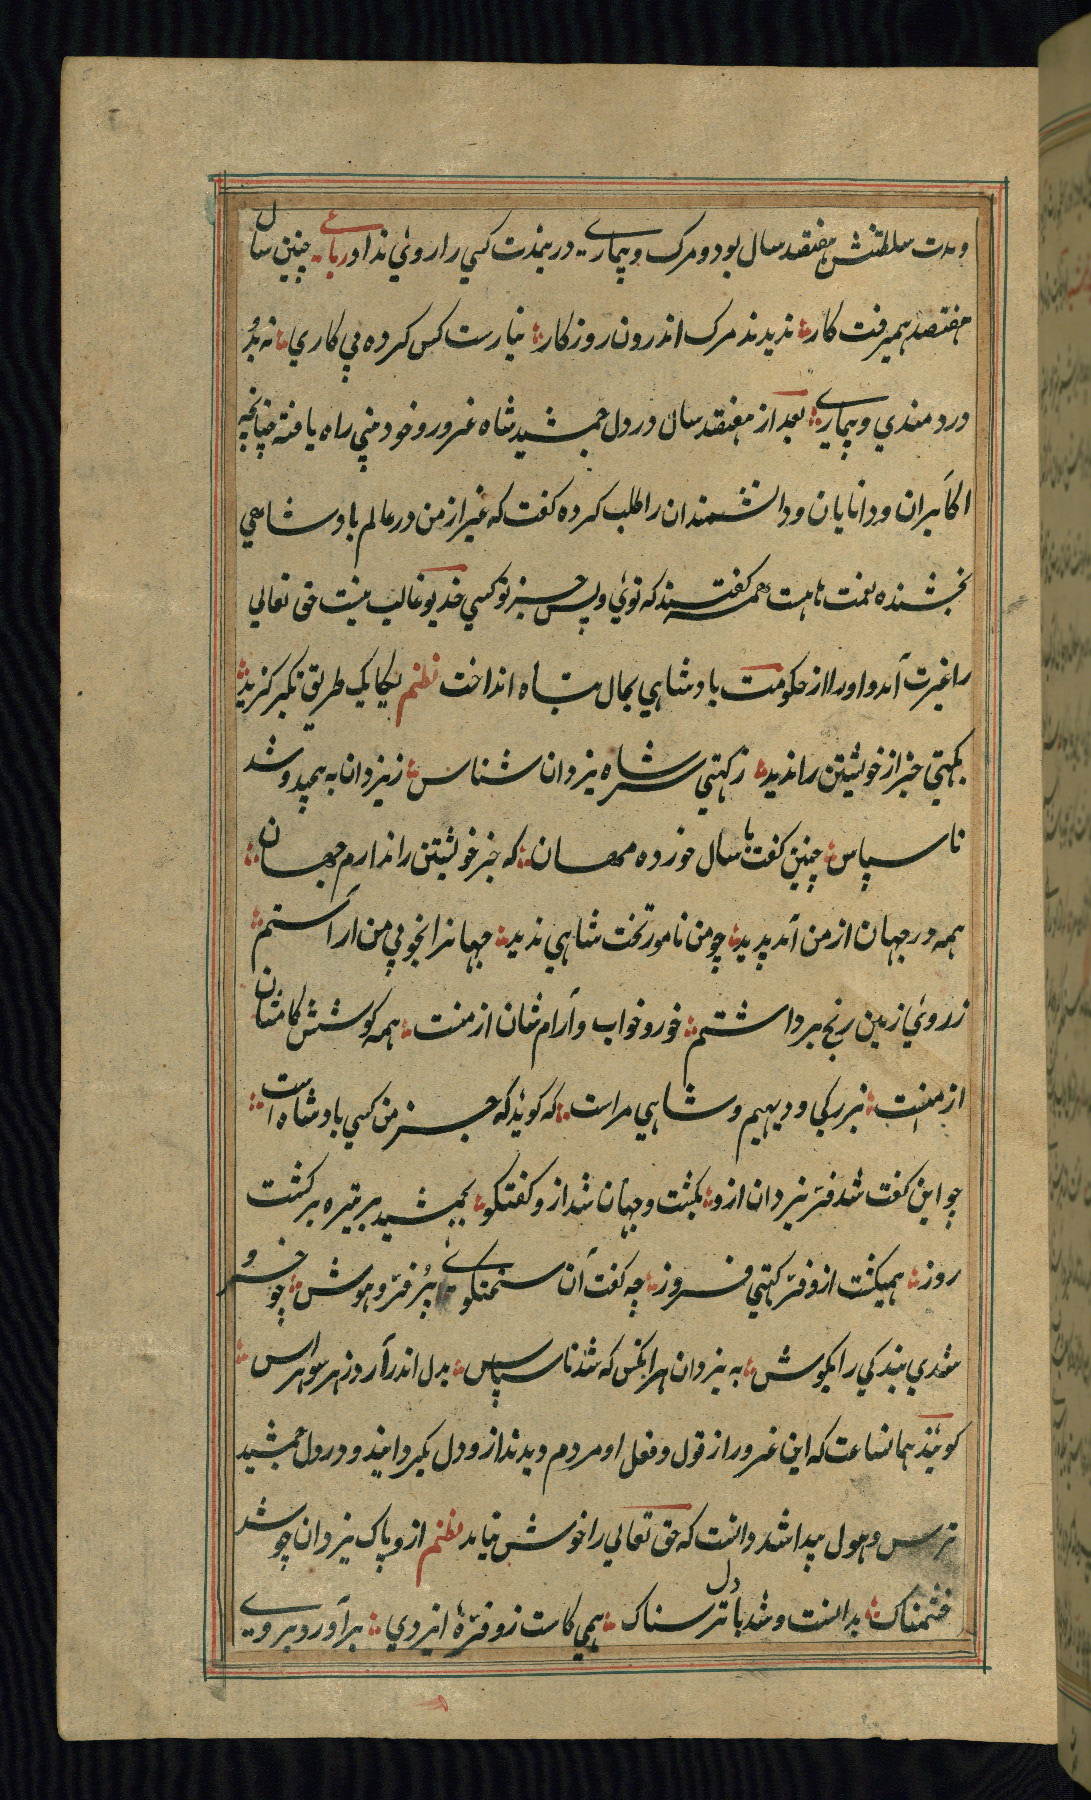 ومدت سلطنتش هفتقد سال بود و مرک و بیماری در بمذت کسي را روئي نداد رباعی چنین سال
هفتصد همیرفت کار ندیدند مرک اندرون روزکار نیارست کس کرده پي کاري نه بد
دردمندي و بیماری بعد از هفتقد سال در دل جمشید شاه غرور و خود مني راه یافته چنانچه
اکابران و دانایان و دانشمندان را طلب کرده کفت که غیر از من در عالم بادشاهي
بخشنده نعمت نا هست همه کفتند که توئي و پس جز تو کسي خدیو غالب نیست حق تعالي
را غیرت آمد و اورا از حکومت بادشاهي بمال تباه انداخت نظم یکایک طریق تکبر کزید
بکهتي جز از خویشتن را ندید ز کهتي سر شاه یزدان شناس ز یزدان به پیچید و شد
ناسپاس چنین کفت با سال خورده مهان که جز خویشتن را ندارم جهان
همه در جهان از من آمد پدید چو من نامور تخت شاهي ندید جهانرا بخوبي من آراستم
ز روئي زمین رنج برداشتم خور و خواب و آرام شان از منست همه کوشش کامشان
از منست بزرکي و دیهیم و شاهي مراست که کوید که جز من کسي بادشاه است
چو این کفت شد فرّ یزدان ازو بکشت و جهان شد از و کفتکو بجمشید بر تیره برکشت
روز همیکشت ازو فرّ کهتي فروز چه کفت آن سخنکوی پُر فرّ و هوش چو خسرو
شدي بندکي را بکوش به یزدان هر انکس که شد ناسپاس بدل اندر آرد ز هر سو هراس
کویند همانساعت که این غرور از قول و فعل او مردم دیدند ازو دل بکردانیدند و در دل جمشید
ترس و هول پیدا شد دانست که حق تعالي را خوش نیامد نظم ازو پاک یزدان چو شد
خشمناک بدانست و شد با دل ترسناک همي کاست زو فرّهٔ ایزدي برآورد بروی